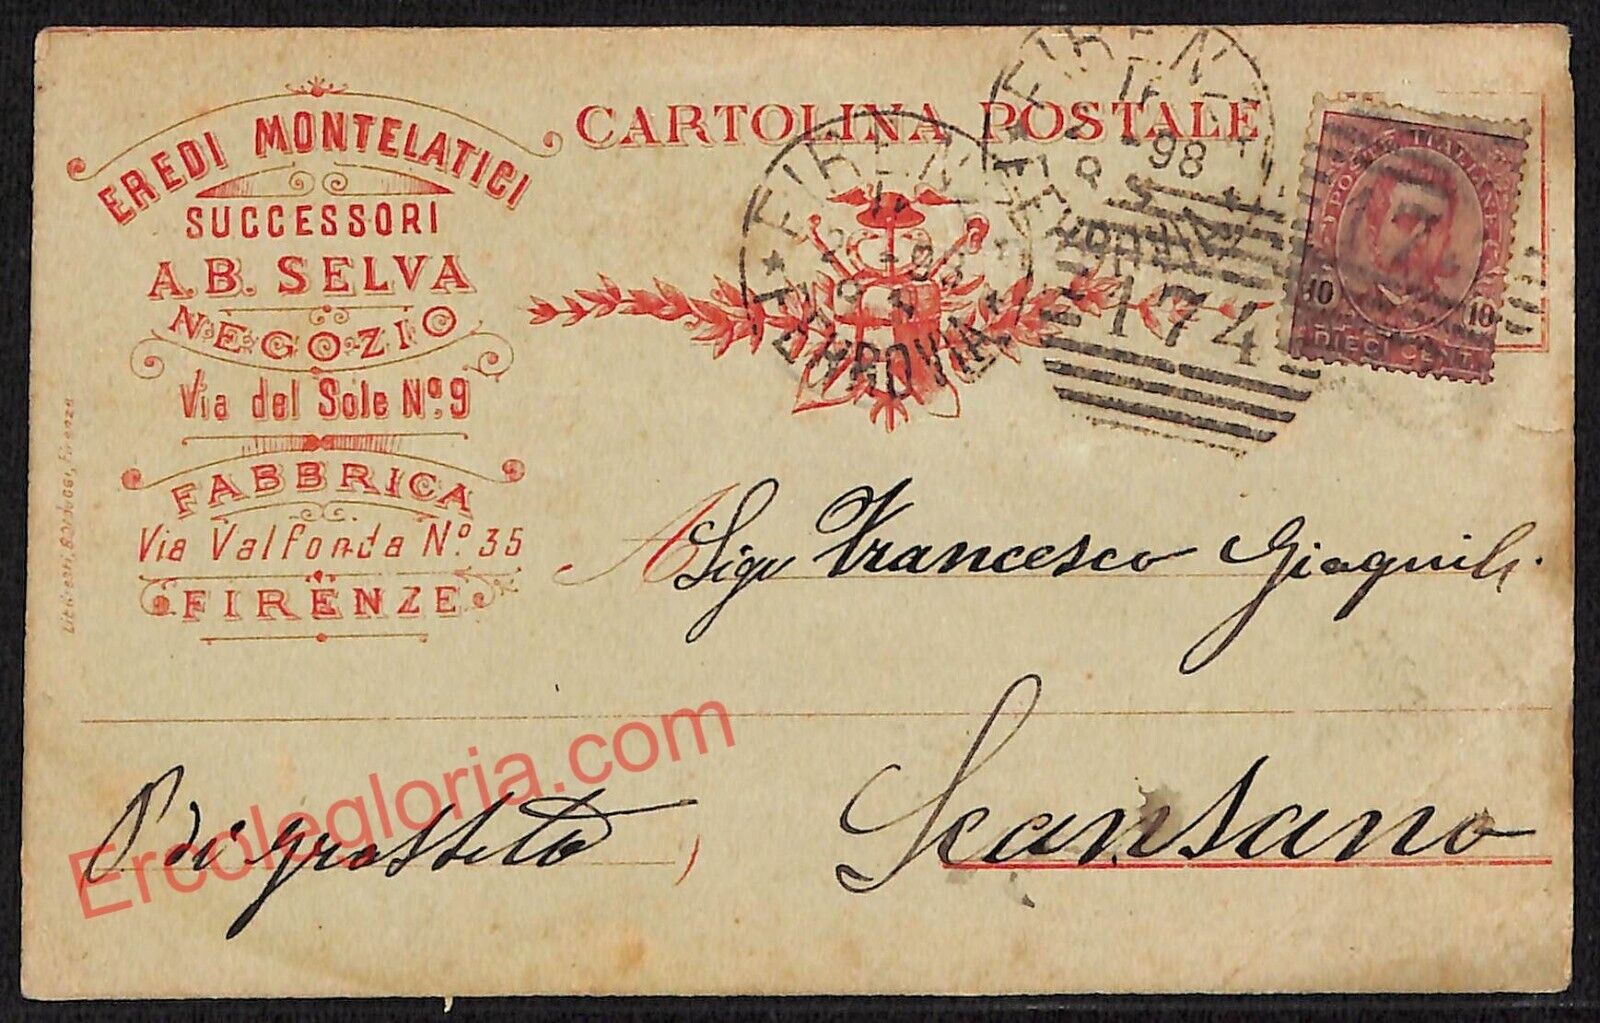 EREDI MONTELATICI
SUCCESSORI
A. B. SELVA
NEGOZIO
Via del Sole Nº. 9
FABBRICA
Via Valfonda Nº. 35
FIRENZE
CARTOLINA POSTALE
FIRENZE
FERROVIA
98
FERROVIA
174
POSTE ITALIANE
10 10
DIECI CENT
A Sigr Francesco
Scansano
P di Grosseto
Ercolegloria.com